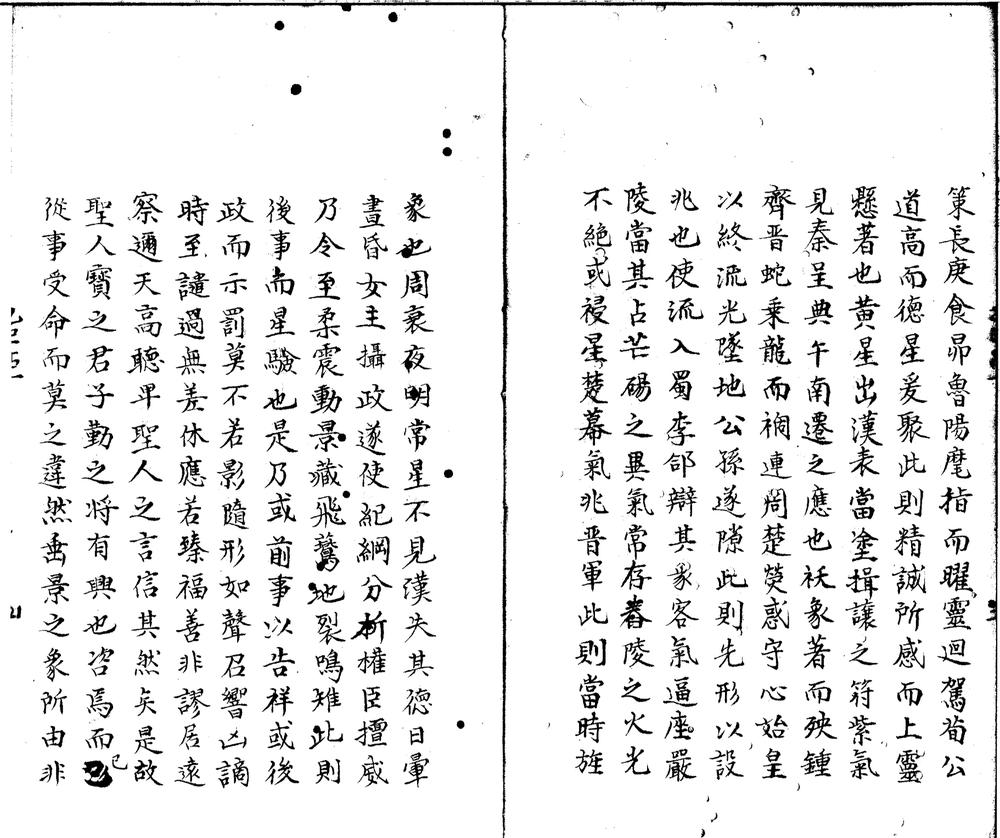 策長庚食昴魯陽麾指而曜靈迴駕荀公
道高而德星爰聚此則精誠所感而上靈
懸著也黄星出漢表當塗揖讓之符紫氣
見秦呈典午南遷之應也袄象著而殃鍾
齊晋蛇乗龍而禍連周楚熒惑守心始皇
以終流光墜地公孫遂隙此則先形以設
兆也使流入蜀李郃辯其彖客氣逼座嚴
陵當其占芒碭之異氣常存舂陵之火光
不絶或祲星楚幕氣兆晋軍此則當時旌
象也周衰夜明常星不見漢失其德日暈
晝昏女主攝政遂使紀綱分析權臣擅威
乃令至柔震動景藏飛鶩地裂鳴雉此則
後事而星驗也是乃或前事以告祥或後
政而示罰莫不若影隨形如聲召響凶謫
時至譴過無差休應若臻福善非謬居遠
察邇天髙聽卑聖人之言信其然矣是故
聖人寳之君子勤之将有興也咨焉而已
從事受命而莫之違然垂景之象所由非